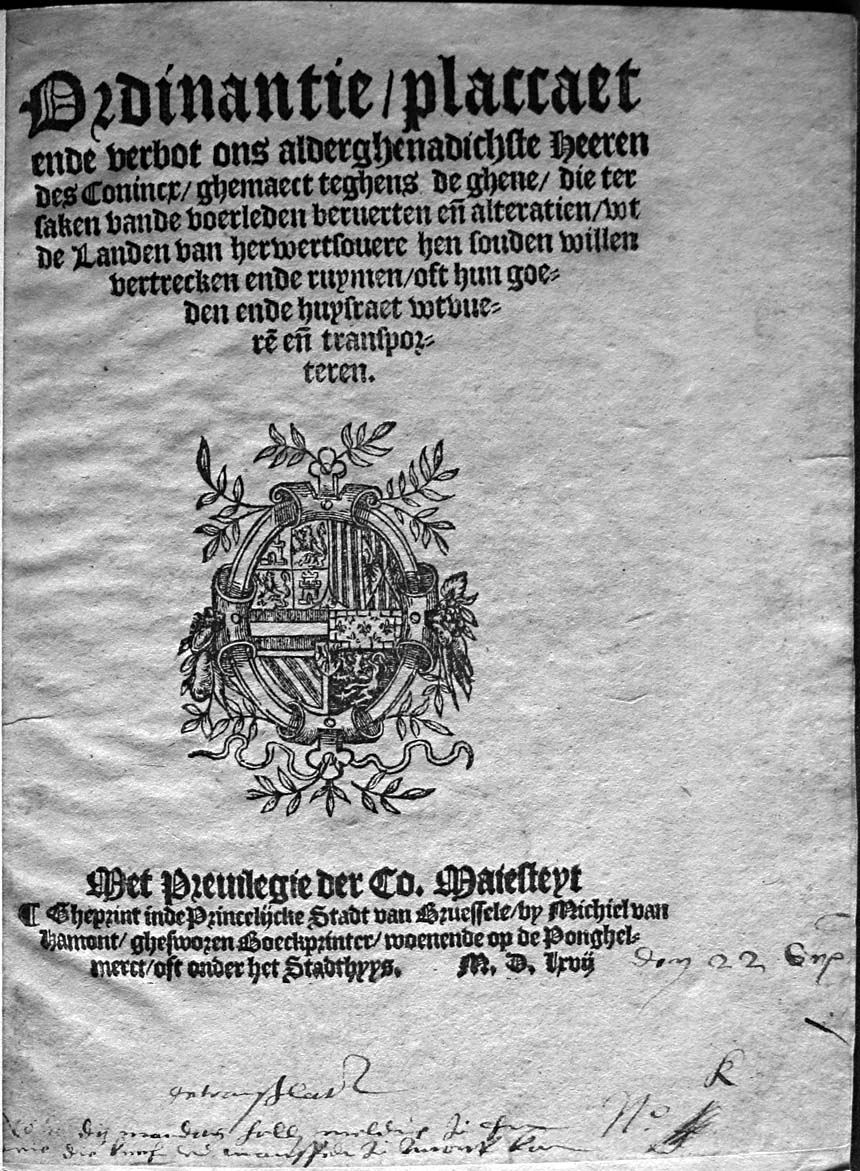 Ordinantie/placcaet
ende verbot ons alderghenadichste Heeren
des Conincx/ ghemaect teghens de ghene/ die ter
saken vande voerleden beruerten eñ alteratien/wt
de Landen van herwertsouere hen souden willen
vertrecken ende ruymen/oft hun goe⸗
den ende huysraet wtvue⸗
rē eñ transpor⸗
teren.
Met Preuilegie der Co. Maiesteyt
¶ Gheprint inde Princelijcke Stadt van Bruessele/by Michiel van
Hamont/ ghesworen Boeckprinter/ woenende op de Ponghel⸗
merct/oft onder het Stadthuys. M. D. lxvij
22
K
No